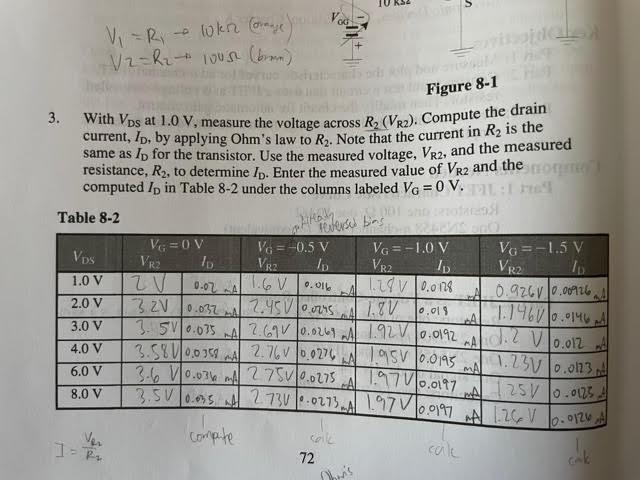 10 kΩ
S
V₁ = R₁ → 10kΩ (orange)
V2 = R2 → 100Ω (brown)
VGG
Figure 8-1
3. With VDS at 1.0 V, measure the voltage across R2 (VR2). Compute the drain
current, ID, by applying Ohm's law to R2. Note that the current in R2 is the
same as ID for the transistor. Use the measured voltage, VR2, and the measured
resistance, R2, to determine ID. Enter the measured value of VR2 and the
computed ID in Table 8-2 under the columns labeled VG = 0 V.
Table 8-2
reversed bias
VDS VG = 0 V VG = -0.5 V VG = -1.0 V VG = -1.5 V
VR2 ID VR2 ID VR2 ID VR2 ID
1.0 V 2 V 0.02 mA 1.6 V 0.016 mA 1.28V 0.0128 mA 0.926V 0.00926 mA
2.0 V 3.2V 0.032 mA 2.45V 0.0245 mA 1.8V 0.018 mA 1.146V 0.0146 mA
3.0 V 3.5V 0.035 mA 2.69V 0.0269 mA 1.92V 0.0192 mA 1.2 V 0.012 mA
4.0 V 3.58V 0.0358 mA 2.76V 0.0276 mA 1.95V 0.0195 mA 1.23V 0.0123 mA
6.0 V 3.6 V 0.036 mA 2.75V 0.0275 mA 1.97V 0.0197 mA 1.25V 0.0125 mA
8.0 V 3.5V 0.035 mA 2.73V 0.0273 mA 1.97V 0.0197 mA 1.26 V 0.0126 mA
I = VR2/R2 compute calc calc calc
72
Ohm's